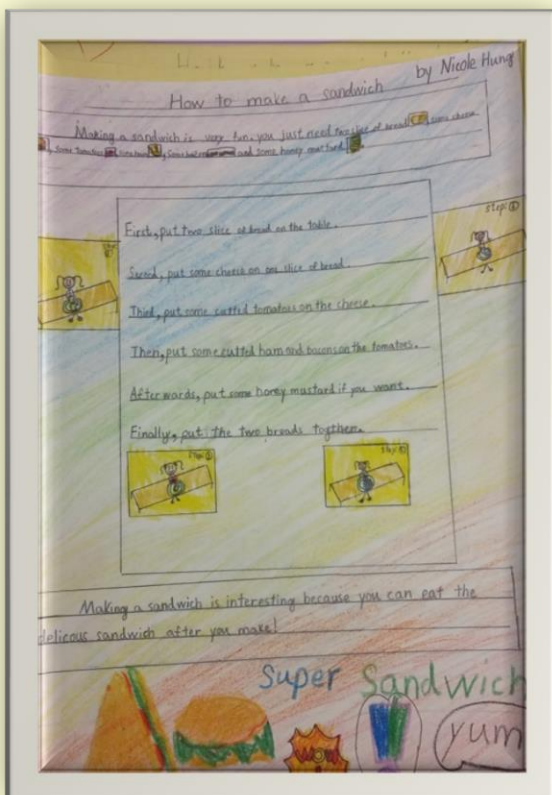 by Nicole Hung
How to make a sandwich
Making a sandwich is very fun, you just need two slice of bread, some cheese
, some tomatoes, some ham, some bacon and some honey mustard.
step:①
First, put two slice of bread on the table.
Second, put some cheese on one slice of bread.
Third, put some cutted tomatoes on the cheese.
Then, put some cutted ham and bacons on the tomatoes.
After wards, put some honey mustard if you want.
Finally, put the two breads togther.
step
step
Making a sandwich is interesting because you can eat the
delicous sandwich after you make!
Super Sandwich
Wow!
yum